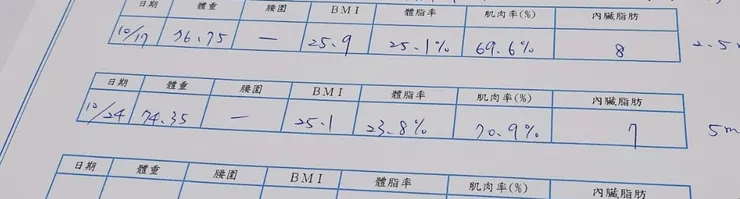 日期 體重 腰圍 BMI 體脂率 肌肉率(%) 內臟脂肪
10/17 76.75 — 25.9 25.1% 69.6% 8 2.5
日期 體重 腰圍 BMI 體脂率 肌肉率(%) 內臟脂肪
10/24 74.35 — 25.1 23.8% 70.9% 7 5m
日期 體重 腰圍 BMI 體脂率 肌肉率(%) 內臟脂肪